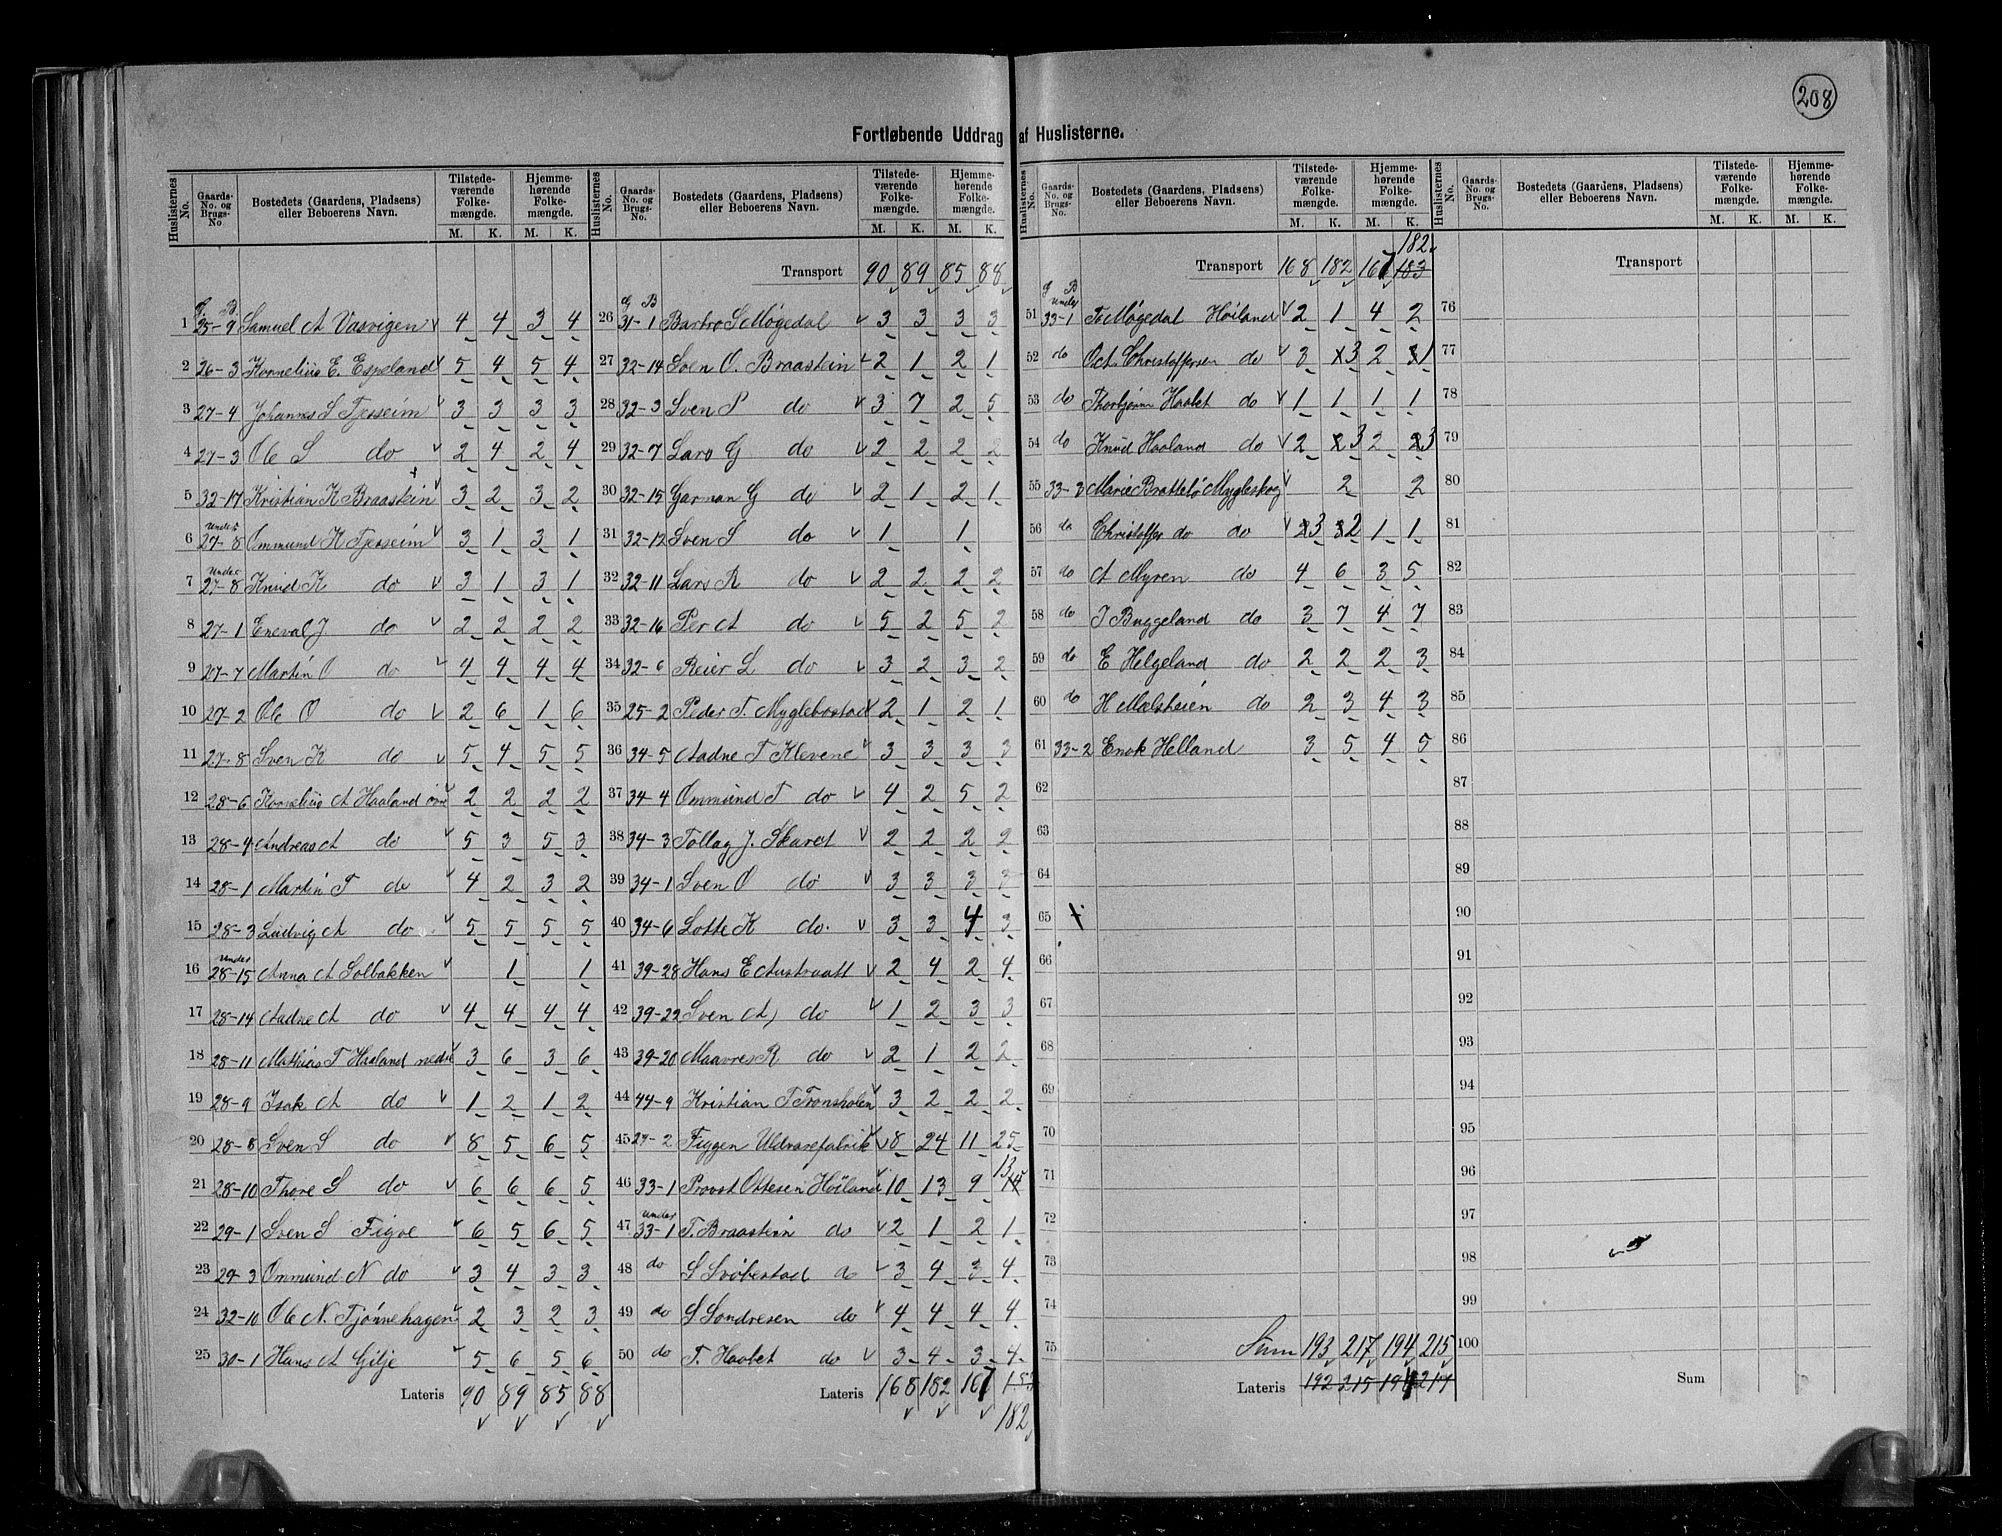 208
Fortløbende Uddrag af Huslisterne.
Huslisternes No. | Gaards-No. og Brugs-No. | Bostedets (Gaardens, Pladsens) eller Beboerens Navn. | Tilstedeværende Folkemængde. M. K. | Hjemmehørende Folkemængde. M. K.
G. B.
1 25-9 Samuel A Vasvigen 4 4 3 4
2 26-3 Kornelius E. Espeland 5 4 5 4
3 27-4 Johannes S Tjesseim 3 3 3 3
4 27-3 Ole S do 2 4 2 4
5 32-17 Kristian K Braastein 3 2 3 2
6 under 27-8 Ommund K Tjesseim 3 1 3 1
7 under 27-8 Knud K do 3 1 3 1
8 27-1 Eneval J do 2 2 2 2
9 27-7 Martin O do 4 4 4 4
10 27-2 Ole O do 2 6 1 6
11 27-8 Sven K do 5 4 5 5
12 28-6 Kornelius A Haaland øvre 2 2 2 2
13 28-4 Andreas A do 5 3 5 3
14 28-1 Martin T do 4 2 3 2
15 28-3 Ludvig A do 5 5 5 5
16 under 28-15 Anna A Solbakken 1 1
17 28-14 Aadne A do 4 4 4 4
18 28-11 Mathias T Haaland nedre 3 6 3 6
19 28-9 Isak A do 1 2 1 2
20 28-8 Sven S do 8 5 6 5
21 28-10 Thore S do 6 6 6 5
22 29-1 Sven S Figve 6 5 6 5
23 29-3 Ommund N do 3 4 3 3
24 32-10 Ole N. Tjønnehagen 2 3 2 3
25 30-1 Hans A Gilje 5 6 5 6
Lateris 90 89 85 88
Huslisternes No. | Gaards-No. og Brugs-No. | Bostedets (Gaardens, Pladsens) eller Beboerens Navn. | Tilstedeværende Folkemængde. M. K. | Hjemmehørende Folkemængde. M. K.
Transport 90 89 85 88
G B
26 31-1 Barbro S Møgedal 3 3 3 3
27 32-14 Sven O. Braastein 2 1 2 1
28 32-3 Sven P do 3 7 2 5
29 32-7 Lars G do 2 2 2 2
30 32-15 Garman G do 2 1 2 1
31 32-12 Sven S do 1 1
32 32-11 Lars R do 2 2 2 2
33 32-16 Per A do 5 2 5 2
34 32-6 Reier L do 3 2 3 2
35 25-2 Peder T. Myglebostad 2 1 2 1
36 34-5 Aadne T Klevene 3 3 3 3
37 34-4 Ommund T do 4 2 5 2
38 34-3 Tollag J. Skaret 2 2 2 2
39 34-1 Sven O do 3 3 3 3
40 34-6 Lotte K do. 3 3 4 3
41 39-28 Hans E Austraatt 2 4 2 4
42 39-22 Sven A do 1 2 3 3
43 39-20 Maavres R do 2 1 2 2
44 44-9 Kristian T Tronsholen 3 2 2 2
45 27-2 Figgen Uldvarefabrik 8 24 11 25
46 33-1 Provst Ottesen Høiland 10 13 9 13 14
47 under 33-1 T. Braastein do 2 1 2 1
48 do S Svobestad do 3 4 3 4
49 do S Sondresen do 4 4 4 4
50 do T. Haabet do 3 4 3 4
Lateris 168 182 167 183
182
Huslisternes No. | Gaards-No. og Brugs-No. | Bostedets (Gaardens, Pladsens) eller Beboerens Navn. | Tilstedeværende Folkemængde. M. K. | Hjemmehørende Folkemængde. M. K.
182
Transport 168 182 167 183
G B
51 under 33-1 T Møgedal Høiland 2 1 4 2
52 do Oct. Christoffersen do 3 3 2 1
53 do Thorbjørn Haabet do 1 1 1 1
54 do Knud Haaland do 2 3 2 3
55 33-3 Marie Brattebø Mygleskog 2 2
56 do Christoffer do do 3 2 1 1
57 do A Myren do 4 6 3 5
58 do J Buggeland do 3 7 4 7
59 do E Helgeland do 2 2 2 3
60 do H Mælsheien do 2 3 4 3
61 33-2 Enok Helland 3 5 4 5
62
63
64
65
66
67
68
69
70
71
72
73
74
75
Sum 193 217 194 215
Lateris 192 215 194 217
Huslisternes No. | Gaards-No. og Brugs-No. | Bostedets (Gaardens, Pladsens) eller Beboerens Navn. | Tilstedeværende Folkemængde. M. K. | Hjemmehørende Folkemængde. M. K.
Transport
76
77
78
79
80
81
82
83
84
85
86
87
88
89
90
91
92
93
94
95
96
97
98
99
100
Sum